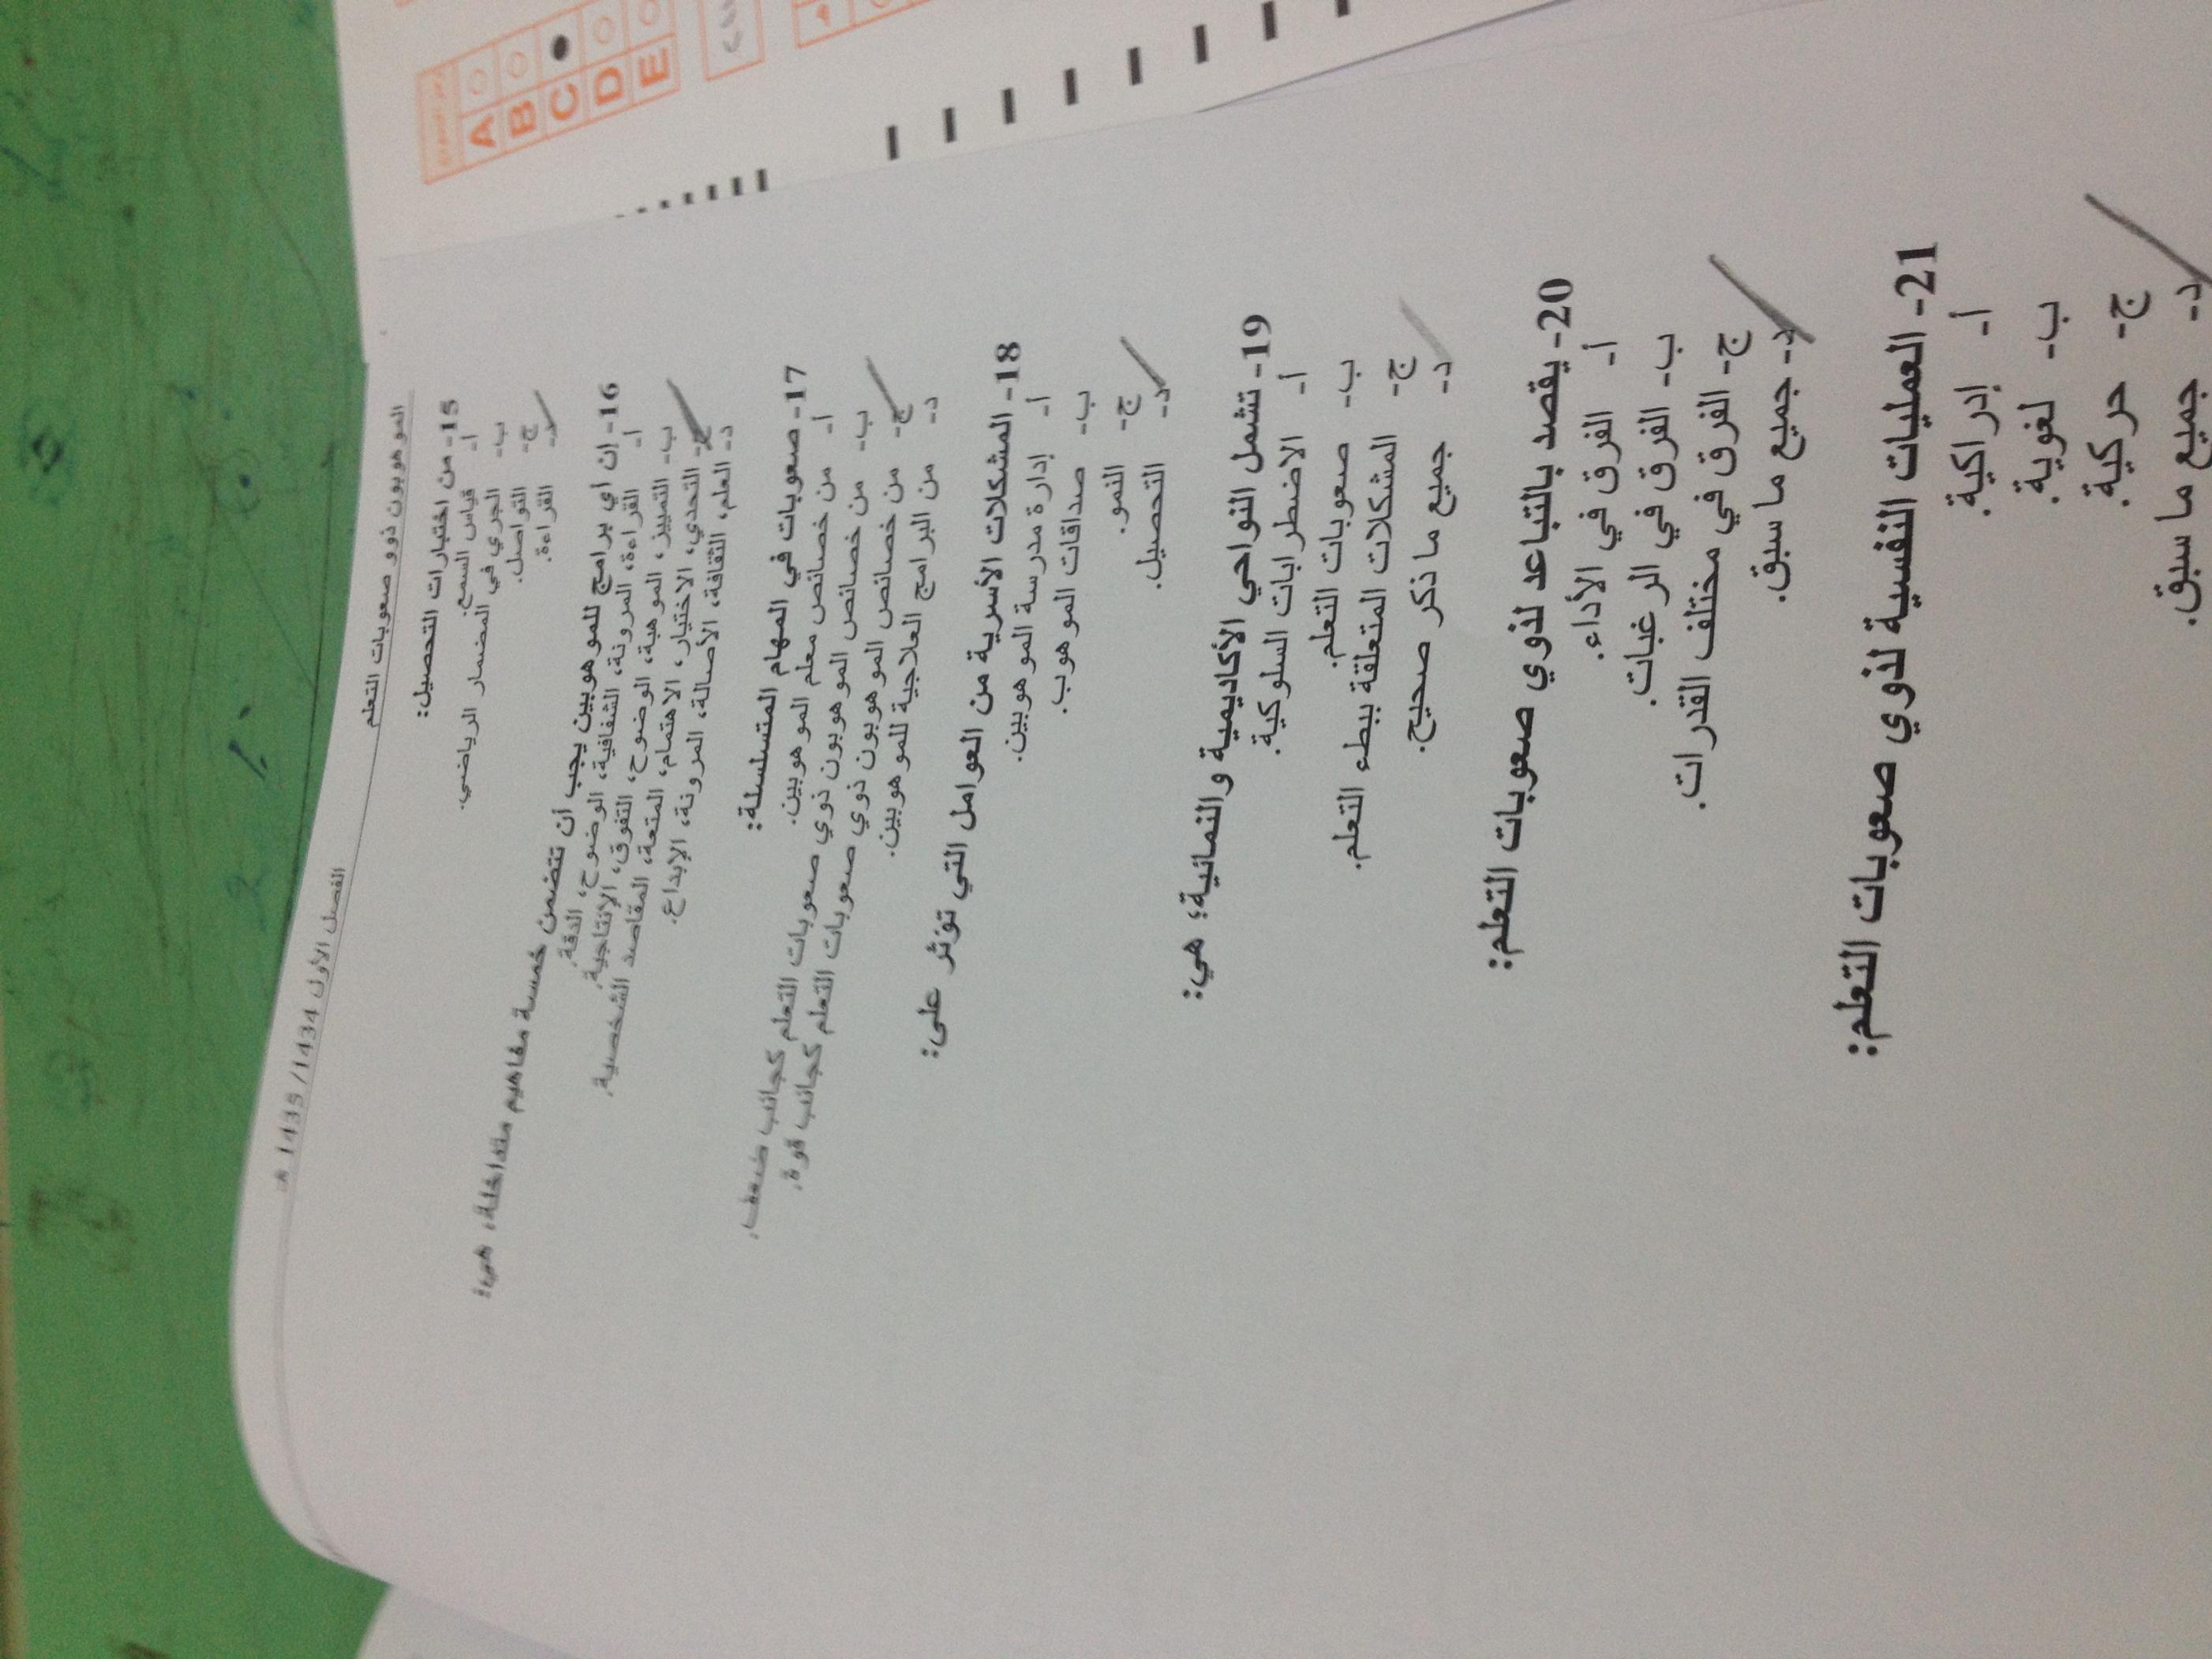 الموهوبون ذوو صعوبات التعلم
الفصل الأول 1434/1435 هـ
15- من اختبارات التحصيل:
أ- قياس السمع.
ب- الجري في المضمار الرياضي.
ج- التواصل.
د- القراءة.
16- إن أي برامج للموهوبين يجب أن تتضمن خمسة مفاهيم متداخلة، هي:
أ- القراءة، المرونة، الشفافية، الوضوح، الدقة.
ب- التمييز، الموهبة، الوضوح، التفوق، الإنتاجية.
ج- التحدي، الاختيار، الاهتمام، المتعة، المقاصد الشخصية.
د- العلم، الثقافة، الأصالة، المرونة، الإبداع.
17- صعوبات في المهام المتسلسلة:
أ- من خصائص معلم الموهوبين.
ب- من خصائص الموهوبون ذوي صعوبات التعلم كجانب ضعف.
ج- من خصائص الموهوبون ذوي صعوبات التعلم كجانب قوة.
د- من البرامج العلاجية للموهوبين.
18- المشكلات الأسرية من العوامل التي تؤثر على:
أ- إدارة مدرسة الموهوبين.
ب- صداقات الموهوب.
ج- النمو.
د- التحصيل.
19- تشمل النواحي الأكاديمية والنمائية؛ هي:
أ- الاضطرابات السلوكية.
ب- صعوبات التعلم.
ج- المشكلات المتعلقة ببطء التعلم.
د- جميع ما ذكر صحيح.
20- يقصد بالتباعد لذوي صعوبات التعلم:
أ- الفرق في الأداء.
ب- الفرق في الرغبات.
ج- الفرق في مختلف القدرات.
د- جميع ما سبق.
21- العمليات النفسية لذوي صعوبات التعلم:
أ- إدراكية.
ب- لغوية.
ج- حركية.
د- جميع ما سبق.
A
B
C
D
E